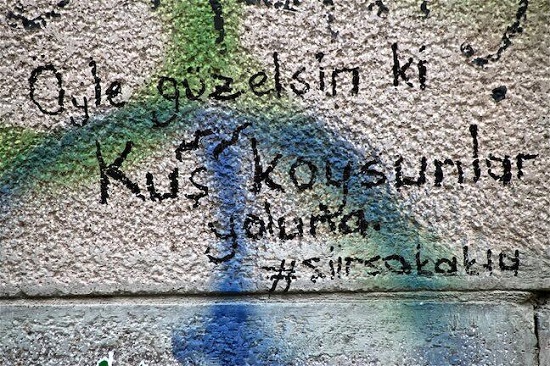 Öyle güzelsin ki
Kuş koysunlar
yoluna.
#şiirsokakta